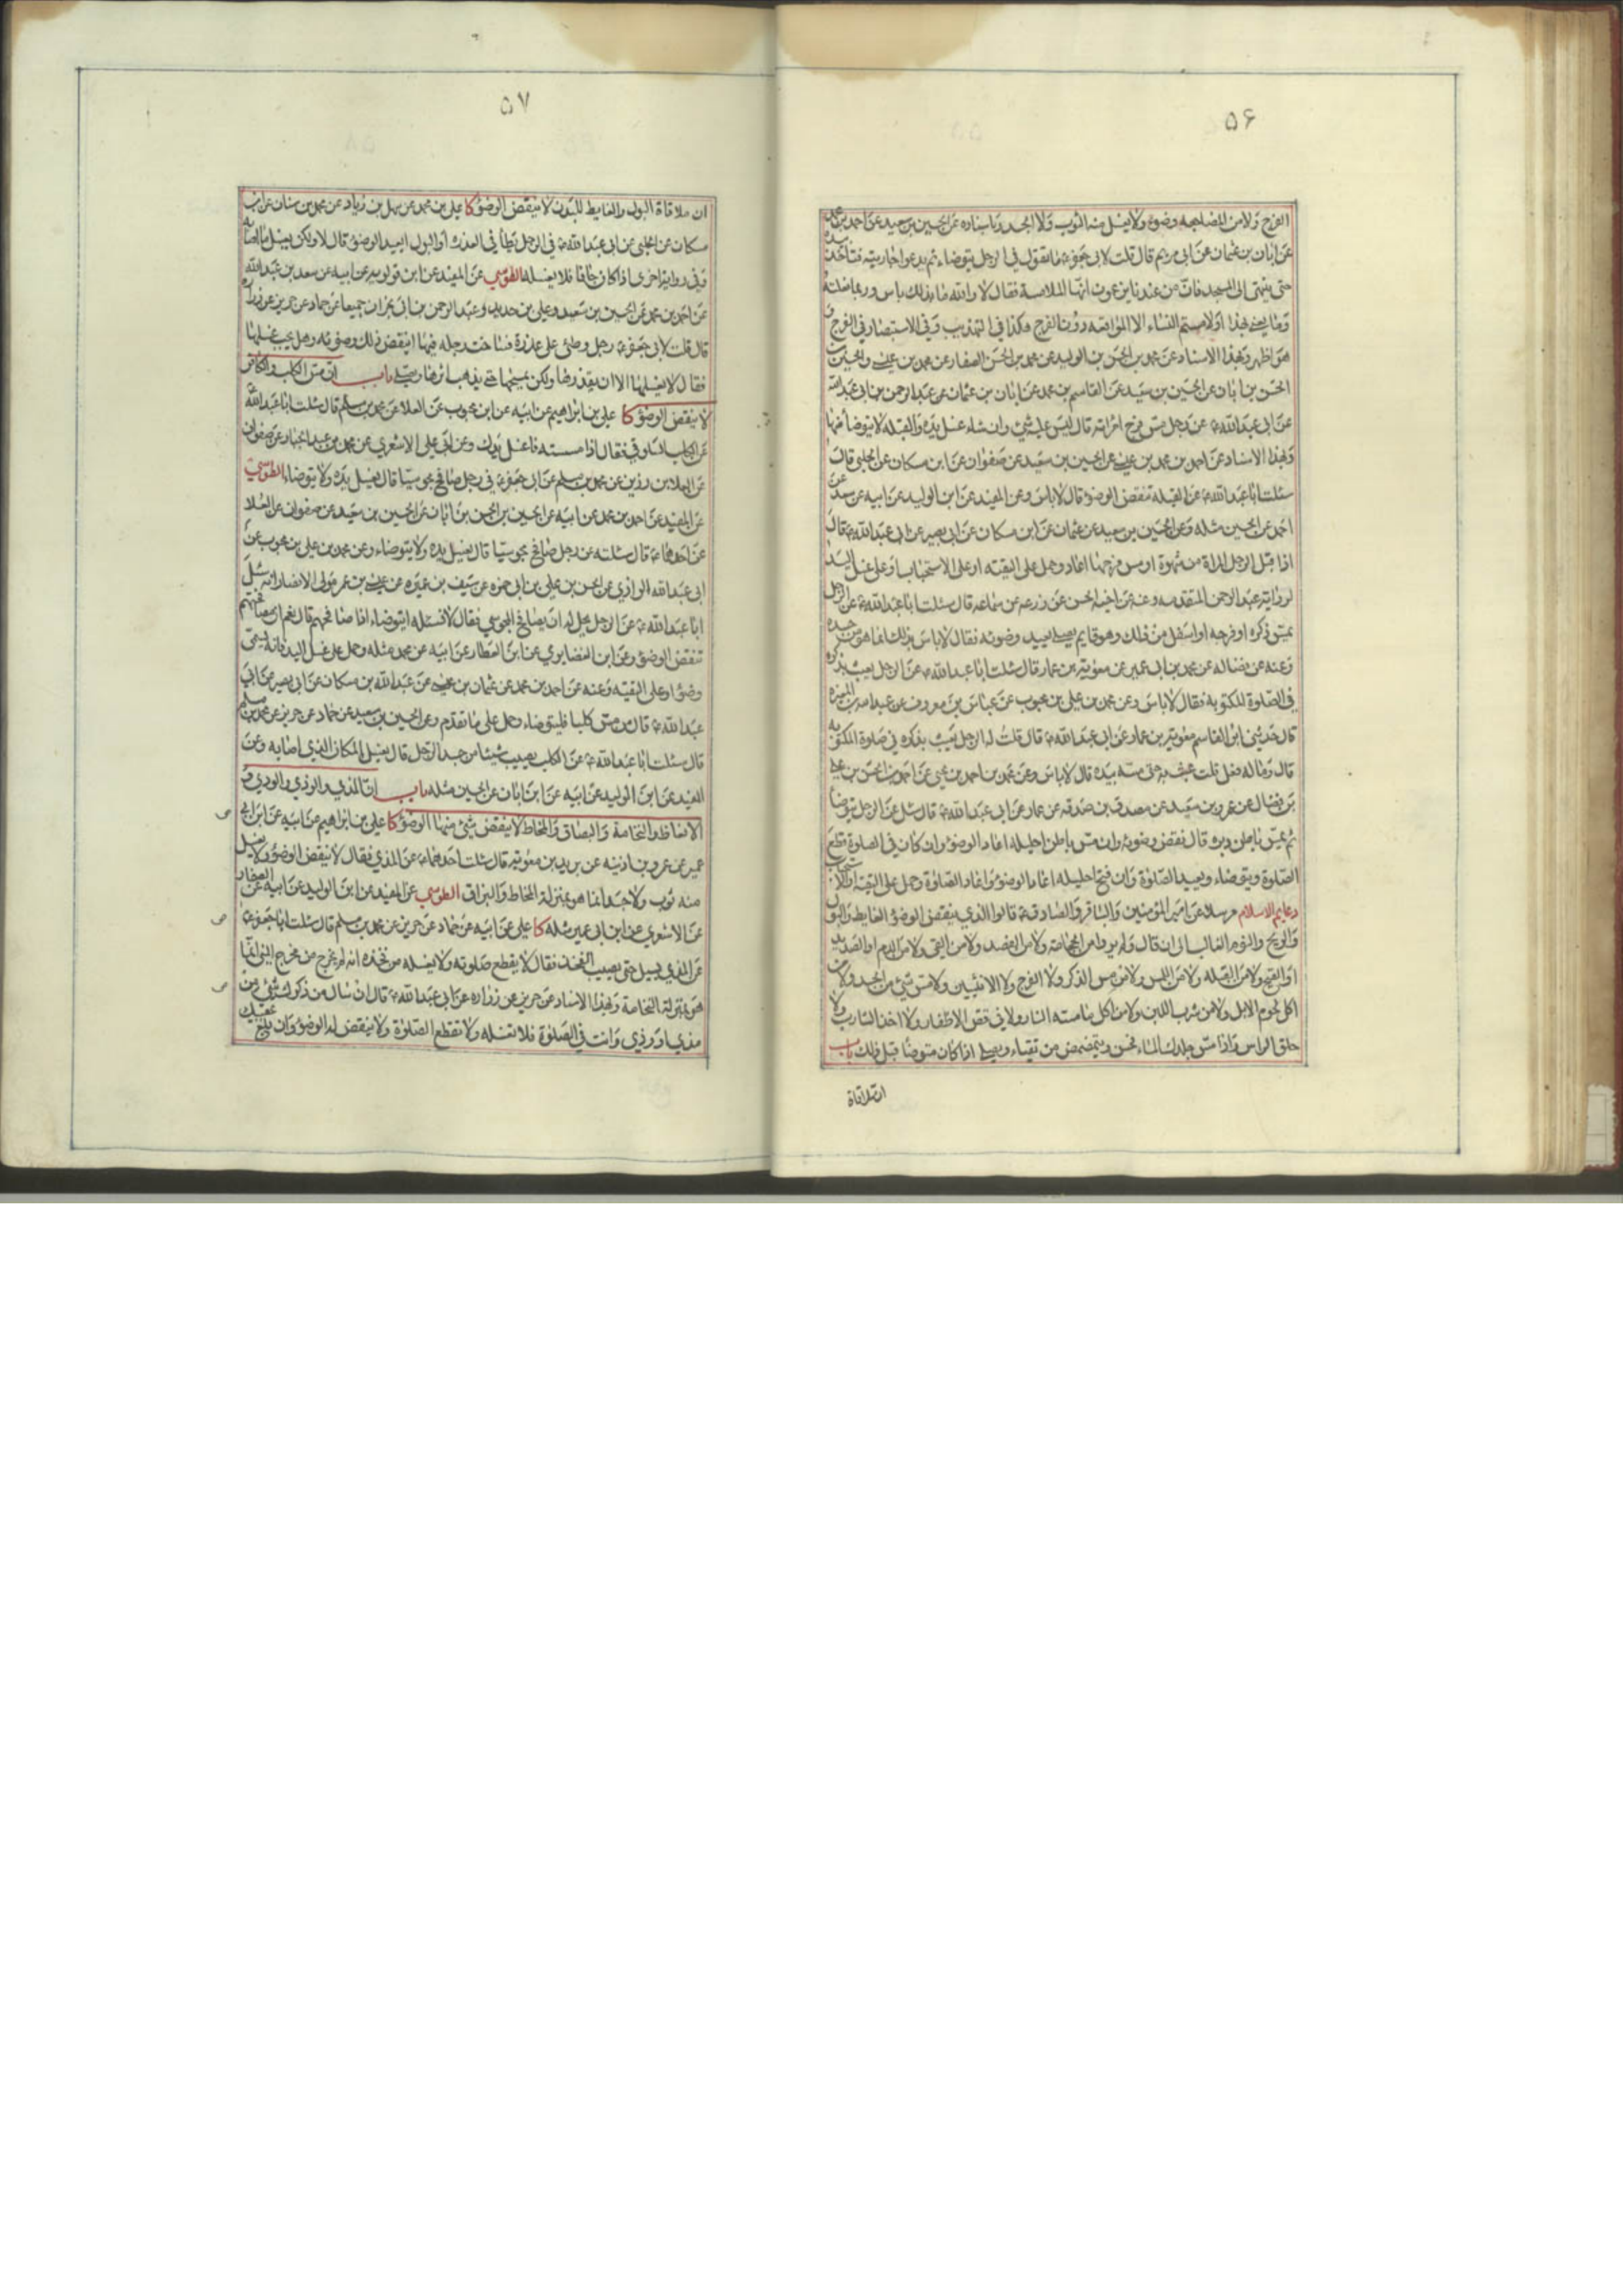 ۵۶
الفرج ولا من المضاجعه وضوء ولا يغسل منه الثوب ولا الجسد وباسناده عن الحسين بن سعيد عن احمد بن محمد
عن ابان بن عثمان عن ابى مريم قال قلت لابى جعفر ع ما تقول فى الرجل يتوضاء ثم يدعو جاريته فتاخذ بيده
حتى ينتهى الى المسجد فان من عندنا يزعمون انها الملامسة فقال لا والله ما بذلك باس وربما فعلته
وما يعنى بهذا او لامستم النساء الا المواقعه دون الفرج هكذا فى التهذيب وفى الاستبصار فى الفرج و
هو اظهر وبهذا الاسناد عن محمد بن الحسن بن الوليد عن محمد بن الحسن الصفار عن محمد بن عيسى والحسين بن
الحسن بن ابان عن الحسين بن سعيد عن القاسم بن محمد عن ابان بن عثمان عن عبد الرحمن بن ابى عبد الله
عن ابى عبد الله ع عن رجل مس فرج امراته قال ليس عليه شئ وان شاء غسل يده والقبله لا يتوضا منها
وبهذا الاسناد عن احمد بن محمد بن عيسى عن الحسين بن سعيد عن صفوان عن ابن مسكان عن الحلبى قال
سئلت ابا عبد الله ع عن القبله تنقض الوضوء قال لا باس وعن المفيد عن ابن الوليد عن ابيه عن سعد عن
احمد عن الحسين مثله وعن الحسين بن سعيد عن عثمان عن ابن مسكان عن ابى بصير عن ابى عبد الله ع قال
اذا قبل الرجل المراة من شهوة او مس فرجها اعاد وحمل على التقيه او على الاستحباب او على غسل اليد
لرواية عبد الرحمن المتقدمه وعنه عن اخيه الحسن عن زرعه عن سماعه قال سئلت ابا عبد الله ع عن الرجل
يمس ذكره او فرجه او اسفل من ذلك وهو قايم يصلى يعيد وضوئه فقال لا باس بذلك انما هو من جسده
وعنه عن فضاله عن محمد بن ابى عمير عن معوية بن عمار قال سئلت ابا عبد الله ع عن الرجل يعبث بذكره
فى الصلوة المكتوبه فقال لا باس وعن محمد بن على بن محبوب عن عباس بن معروف عن عبد الله بن المغيره
قال حدثنى ابو القاسم معوية بن عمار عن ابى عبد الله ع قال قلت له الرجل يعبث بذكره فى صلوة المكتوبه
قال وما له فعل قلت عبث به حتى مسه بيده قال لا باس وعن محمد بن احمد بن يحيى عن احمد بن الحسن بن على
بن فضال عن عمرو بن سعيد عن مصدق بن صدقه عن عمار عن ابى عبد الله ع قال سئل عن الرجل يتوضا
ثم يمس باطن دبره قال نقض وضوئه وان مس باطن احليله اعاد الوضوء وان كان فى الصلوة قطع
الصلوة ويتوضاء ويعيد الصلوة وان فتح احليله اعاد الوضوء واعاد الصلوة وحمل على التقيه او الاستحباب
دعايم الاسلام مرسلا عن امير المؤمنين والباقر والصادق ع قالوا الذى ينقض الوضوء الغايط والبول
والريح والنوم الغالب الى ان قال ولم يروا من الحجامة ولا من الفصد ولا من القى ولا من الدم او الصديد
او القيح ولا من القبله ولا من اللمس ولا من مس الذكر ولا الفرج ولا الانثيين ولا مس شئ من الجسد ولا من
اكل لحوم الابل ولا من شرب اللبن ولا من اكل ما مسته النار ولا فى قص الاظفار ولا اخذ الشارب ولا
حلق الراس واذا مس جلدك الماء فحسن ويتمضمض من تقياء ويصلى اذا كان متوضئا قبل ذلك باب
ان ملاقاة
۵۷
ان ملاقاة البول والغايط للبدن لا ينقض الوضوء كا على بن محمد عن سهل بن زياد عن محمد بن سنان عن ابن
مسكان عن الحلبى عن ابى عبد الله ع فى الرجل يطأ فى العذرة او البول ايعيد الوضوء قال لا ولكن يغسل ما اصابه
وفى رواية اخرى اذا كان جافا فلا يغسله الطوسى عن المفيد عن ابن قولويه عن ابيه عن سعد بن عبد الله
عن احمد بن محمد عن الحسين بن سعيد وعلى بن حديد وعبد الرحمن بن ابى نجران جميعا عن حماد عن حريز عن زراره
قال قلت لابى جعفر ع رجل وطئ على عذرة فساخت رجله فيها اينقض ذلك وضوئه وهل يجب غسلها
فقال لا يغسلها الا ان يقذرها ولكن يمسحها حتى يذهب اثرها ويصلى باب ان مس الكلب والكافر
لا ينقض الوضوء كا على بن ابراهيم عن ابيه عن ابن محبوب عن العلا عن محمد بن مسلم قال سئلت ابا عبد الله ع
عن الكلب السلوقى فقال اذا مسسته فاغسل يدك وعن ابى على الاشعرى عن محمد بن عبد الجبار عن صفوان
عن العلا بن رزين عن محمد بن مسلم عن ابى جعفر ع فى رجل صافح مجوسيا قال يغسل يده ولا يتوضاء الطوسى
عن المفيد عن احمد بن محمد عن ابيه عن الحسين بن الحسن بن ابان عن الحسين بن سعيد عن صفوان عن العلا
عن احدهما ع قال سئلته عن رجل صافح مجوسيا قال يغسل يده ولا يتوضاء وعن محمد بن على بن محبوب عن
ابى عبد الله الرازى عن الحسن بن على بن ابى حمزه عن سيف بن عميره عن عيسى بن عمر مولى الانصار انه سئل
ابا عبد الله ع عن الرجل يحل له ان يصافح المجوسى فقال لا فسئله ايتوضاء اذا صافحهم قال نعم ان مصافحتهم
تنقض الوضوء وعن ابن الغضايرى عن ابن العطار عن ابيه عن محمد مثله وحمل على غسل اليد فانه يسمى
وضوء او على التقيه وعنه عن احمد بن محمد عن عثمان بن عيسى عن عبد الله بن مسكان عن ابى بصير عن ابى
عبد الله ع قال من مس كلبا فليتوضاء وحمل على ما تقدم وعن الحسين بن سعيد عن حماد عن حريز عن محمد بن مسلم
قال سئلت ابا عبد الله ع عن الكلب يصيب شيئا من جسد الرجل قال يغسل المكان الذى اصابه وعن
المفيد عن ابن الوليد عن ابيه عن ابن ابان عن الحسين مثله باب ان المذى والوذى والودى و
الانعاظ والنخامة والبصاق والمخاط لا ينقض شئ منها الوضوء كا على بن ابراهيم عن ابيه عن ابن ابى
عمير عن عمر بن اذينه عن بريد بن معوية قال سئلت احدهما ع عن المذى فقال لا ينقض الوضوء ولا يغسل
منه ثوب ولا جسد انما هو بمنزلة المخاط والبزاق الطوسى عن المفيد عن ابن الوليد عن ابيه عن الصفار
عن الاشعرى عن ابن ابى عمير مثله كا على عن ابيه عن حماد عن حريز عن محمد بن مسلم قال سئلت ابا جعفر ع
عن المذى يسيل حتى يصيب الفخذ فقال لا يقطع صلوته ولا يغسله من فخذه انه لم يخرج من مخرج المنى انما
هو بمنزلة النخامة وبهذا الاسناد عن حريز عن زراره عن ابى عبد الله ع قال ان سال من ذكرك شئ من
مذى او وذى وانت فى الصلوة فلا تغسله ولا تقطع الصلوة ولا ينقض له الوضوء وان بلغ عقبيك